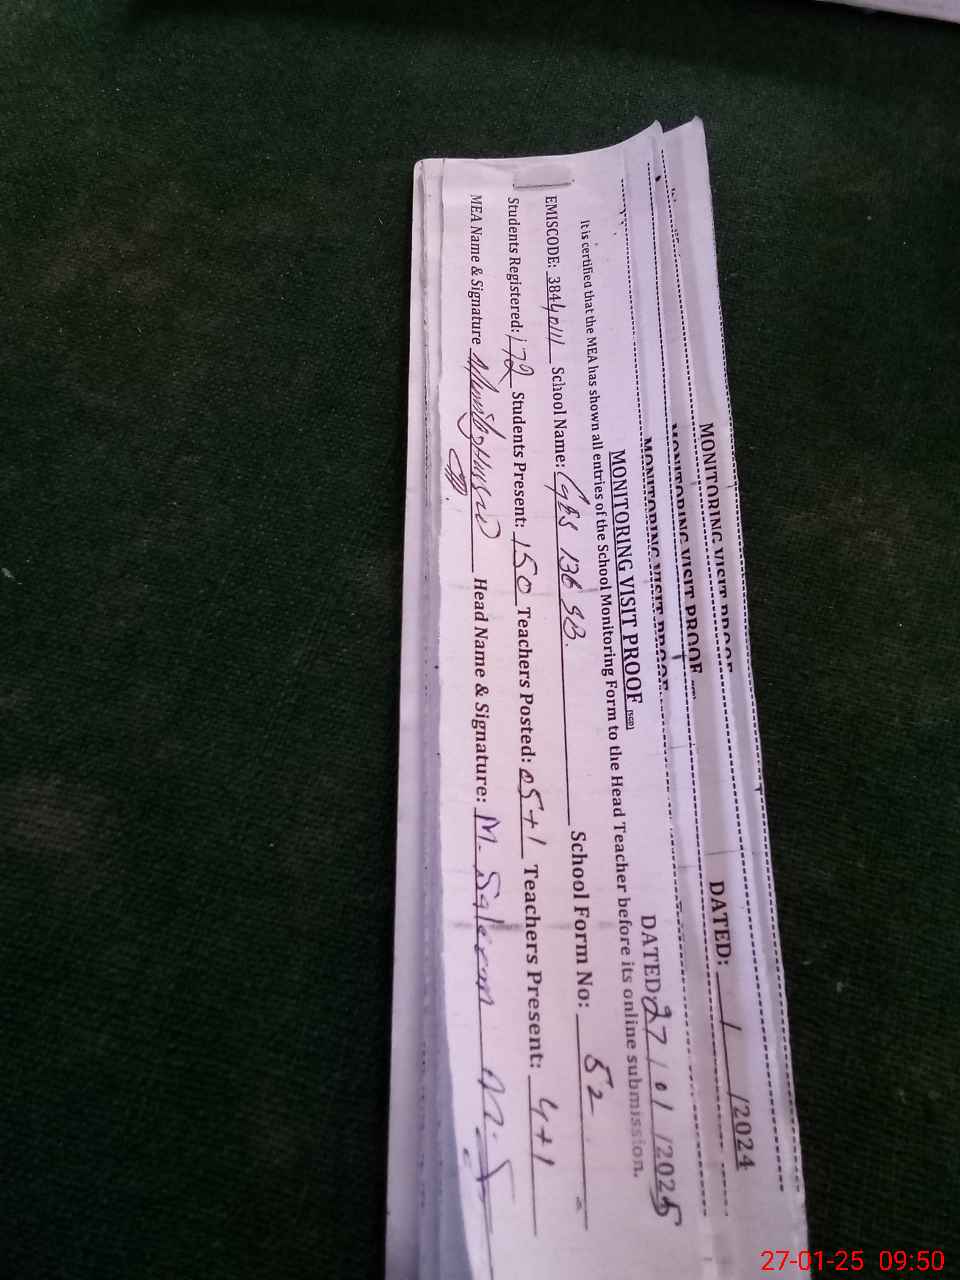 MONITORING VISIT PROOF
DATED: / /2024
MONITORING VISIT PROOF
MONITORING VISIT PROOF
MONITORING VISIT PROOF (SGD) DATED 27 / 01 /2025
It is certified that the MEA has shown all entries of the School Monitoring Form to the Head Teacher before its online submission.
EMISCODE: School Name: GES 136 SB. School Form No: 52
Students Registered: 172 Students Present: 150 Teachers Posted: 05+1 Teachers Present: 4+1
MEA Name & Signature Head Name & Signature: M. Saleem
27-01-25 09:50